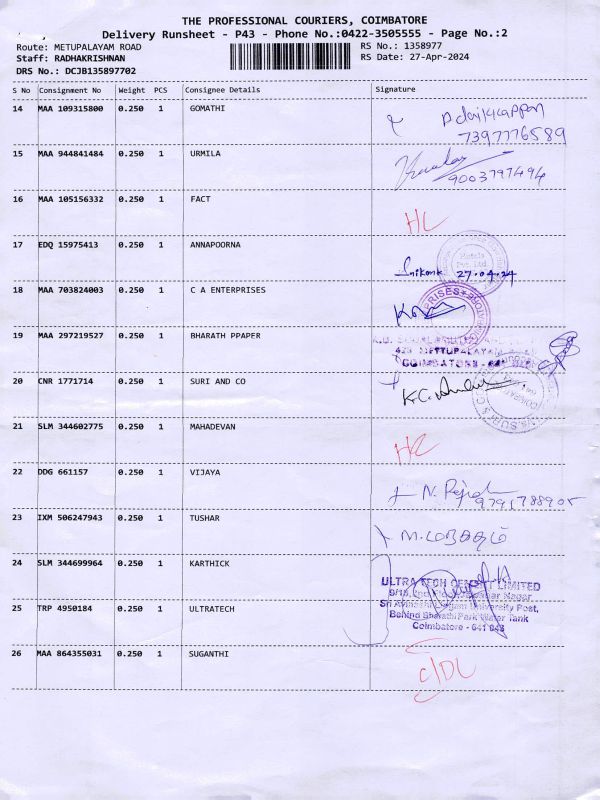 THE PROFESSIONAL COURIERS, COIMBATORE
Delivery Runsheet - P43 - Phone No.:0422-3505555 - Page No.:2
Route: METUPALAYAM ROAD RS No.: 1358977
Staff: RADHAKRISHNAN RS Date: 27-Apr-2024
DRS No.: DCJB135897702
S No Consignment No Weight PCS Consignee Details Signature
14 MAA 109315800 0.250 1 GOMATHI
7397776589
15 MAA 944841484 0.250 1 URMILA
9003797494
16 MAA 105156332 0.250 1 FACT
17 EDQ 15975413 0.250 1 ANNAPOORNA
27.04.24
18 MAA 703824003 0.250 1 C A ENTERPRISES
19 MAA 297219527 0.250 1 BHARATH PPAPER
METTUPALAYAM
COIMBATORE
20 CNR 1771714 0.250 1 SURI AND CO
21 SLM 344602775 0.250 1 MAHADEVAN
22 DDG 661157 0.250 1 VIJAYA
9791788905
23 IXM 506247943 0.250 1 TUSHAR
24 SLM 344699964 0.250 1 KARTHICK
ULTRA TECH CEMENT LIMITED
25 TRP 4950184 0.250 1 ULTRATECH
University Post,
Behind Bharathi Park Water Tank
Coimbatore - 641 043
26 MAA 864355031 0.250 1 SUGANTHI
C/DL